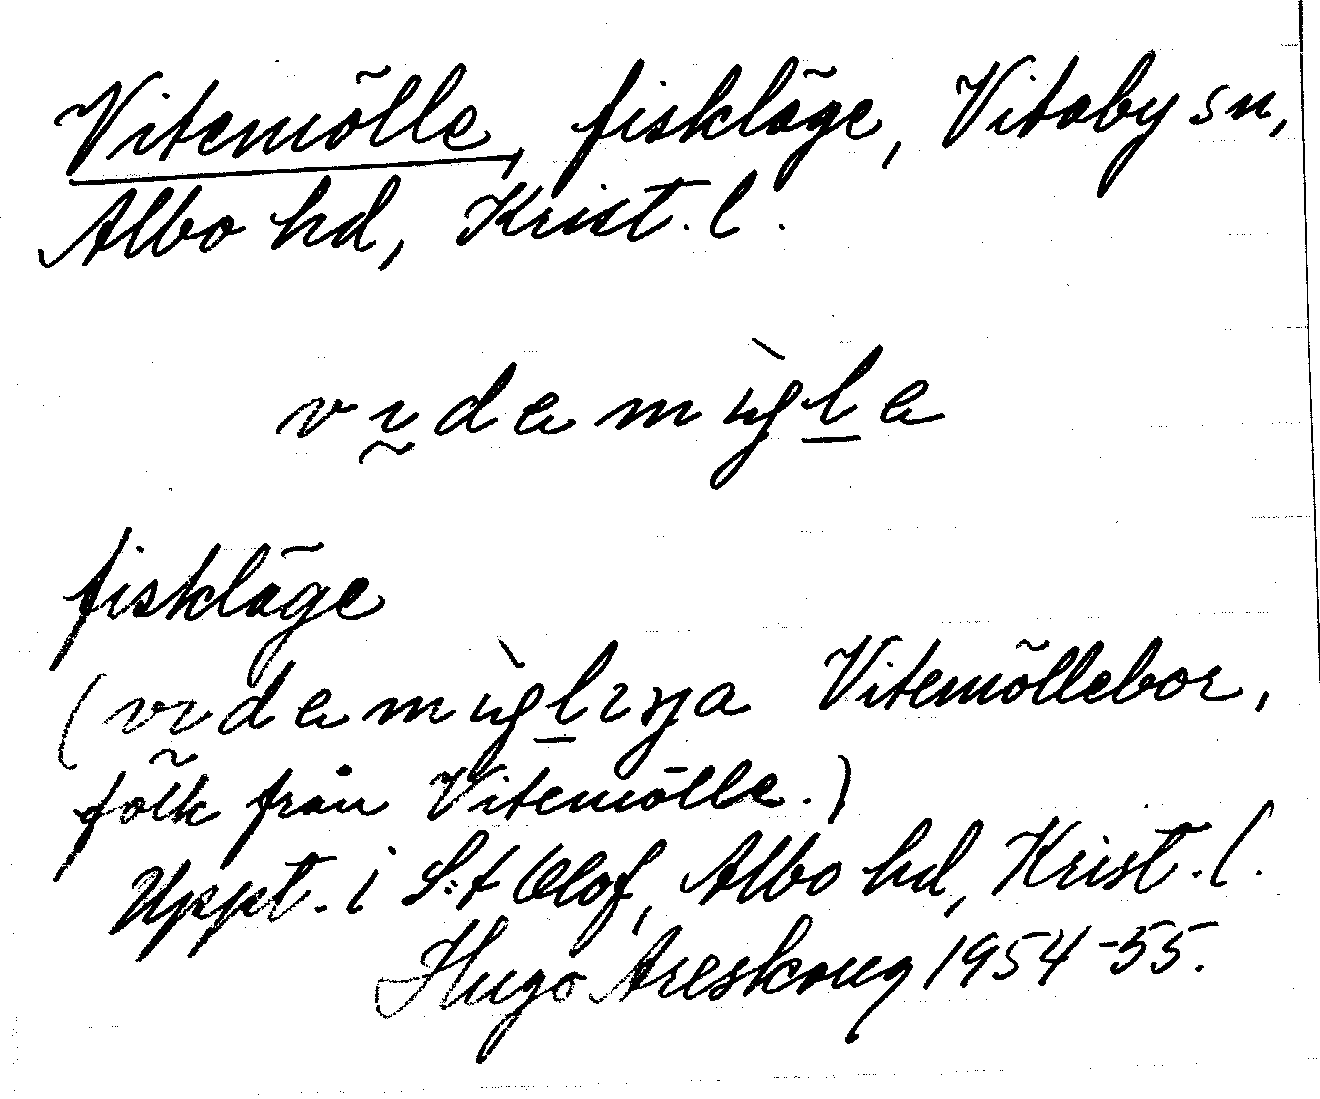 Vitemölle, fiskläge, Vitaby sn,
Albo hd, Krist. l.
fiskläge
Vitemöllebor,
folk från Vitemölle.)
Uppt. i S:t Olof, Albo hd, Krist. l.
Hugo Areskoug 1954-55.